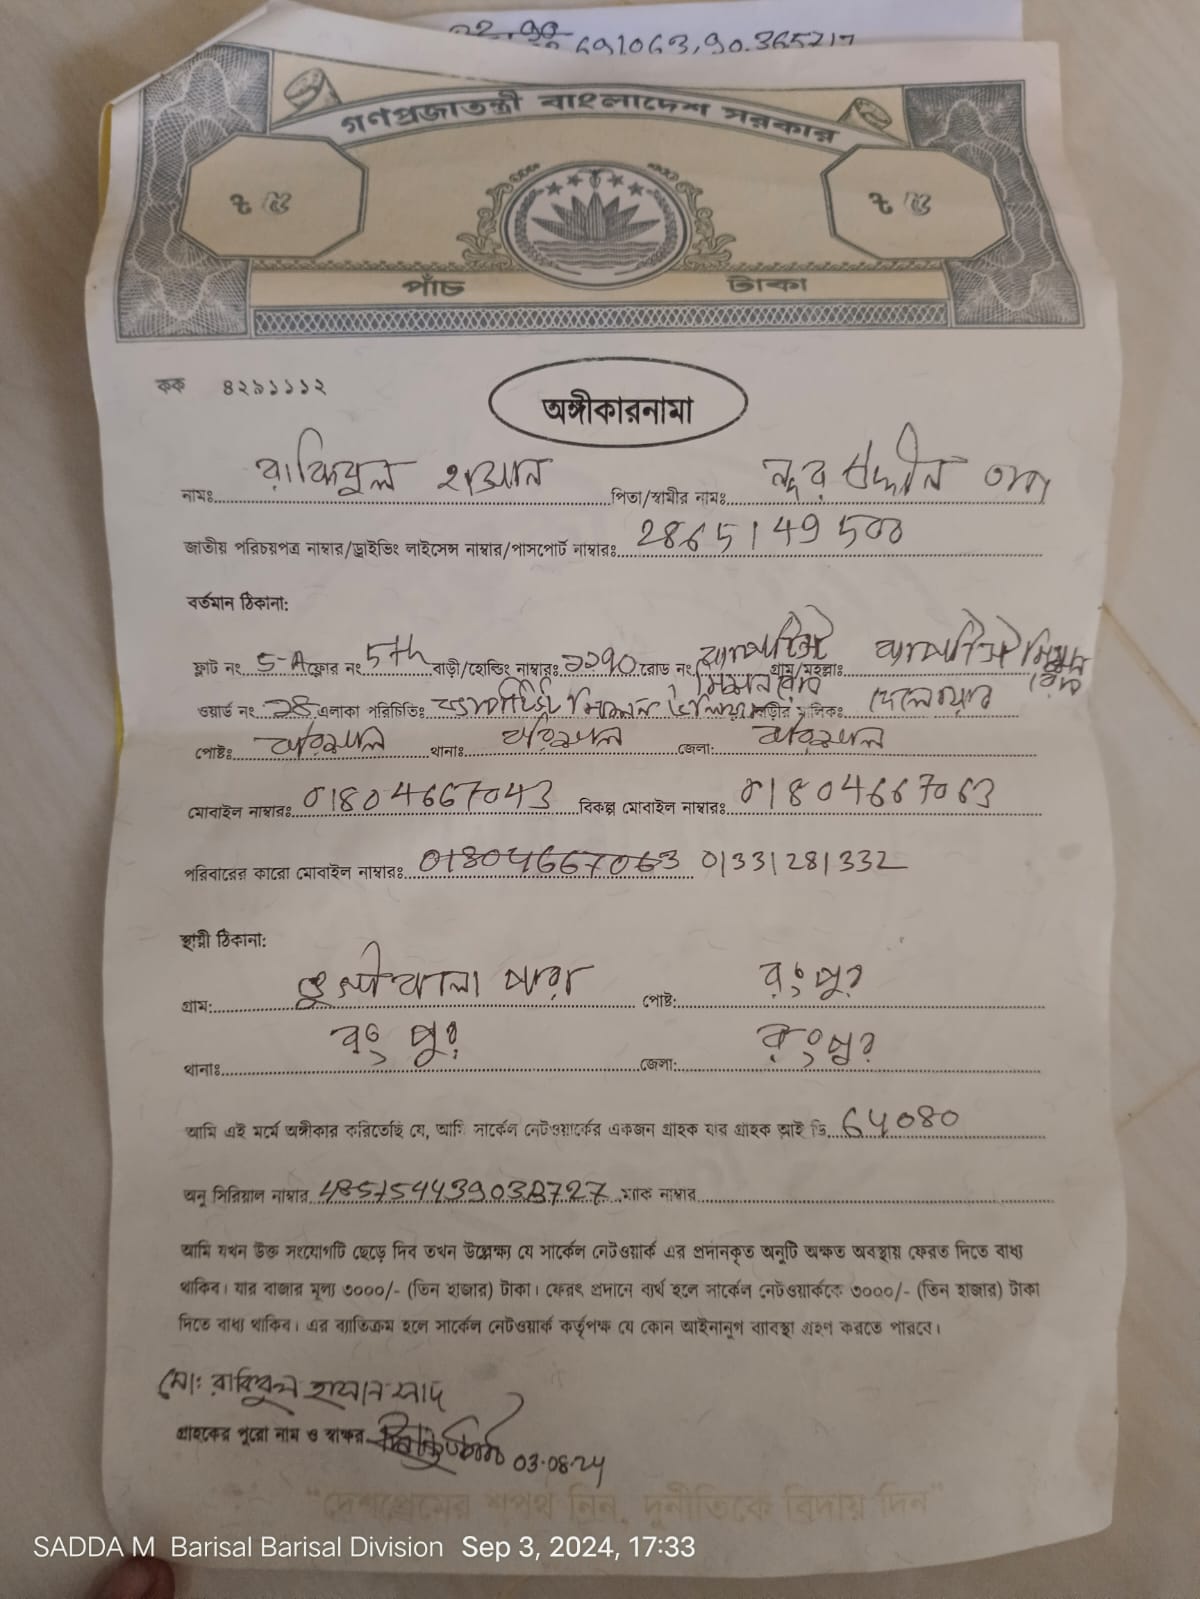 691063,90.365217
গণপ্রজাতন্ত্রী বাংলাদেশ সরকার
পাঁচ টাকা
কক ৪২৯১১১২
অঙ্গীকারনামা
নামঃ রাকিবুল হাসান পিতা/স্বামীর নামঃ নূর উদ্দীন
জাতীয় পরিচয়পত্র নাম্বার/ড্রাইভিং লাইসেন্স নাম্বার/পাসপোর্ট নাম্বারঃ 2865149500
বর্তমান ঠিকানা:
ফ্লাট নং 5-A ফ্লোর নং 5th বাড়ী/হোল্ডিং নাম্বারঃ রোড নং গ্রাম/মহল্লাঃ
ওয়ার্ড নং 28 এলাকা পরিচিতিঃ বাড়ীর মালিকঃ দেলোয়ার
পোষ্টঃ বরিশাল থানাঃ বরিশাল জেলা: বরিশাল
মোবাইল নাম্বারঃ 01804667043 বিকল্প মোবাইল নাম্বারঃ 01804667063
পরিবারের কারো মোবাইল নাম্বারঃ 01804667063 01331281332
স্থায়ী ঠিকানা:
গ্রাম: পাড়া পোষ্ট: রংপুর
থানাঃ রংপুর জেলা: রংপুর
আমি এই মর্মে অঙ্গীকার করিতেছি যে, আমি সার্কেল নেটওয়ার্কের একজন গ্রাহক যার গ্রাহক আই ডি 64080
অনু সিরিয়াল নাম্বার ম্যাক নাম্বার
আমি যখন উক্ত সংযোগটি ছেড়ে দিব তখন উল্লেক্ষ্য যে সার্কেল নেটওয়ার্ক এর প্রদানকৃত অনুটি অক্ষত অবস্থায় ফেরত দিতে বাধ্য
থাকিব। যার বাজার মূল্য ৩০০০/- (তিন হাজার) টাকা। ফেরৎ প্রদানে ব্যর্থ হলে সার্কেল নেটওয়ার্ককে ৩০০০/- (তিন হাজার) টাকা
দিতে বাধ্য থাকিব। এর ব্যাতিক্রম হলে সার্কেল নেটওয়ার্ক কর্তৃপক্ষ যে কোন আইনানুগ ব্যাবস্থা গ্রহণ করতে পারবে।
মো: রাকিবুল হাসান সাদ
গ্রাহকের পুরো নাম ও স্বাক্ষর 03-08-24
"দেশপ্রেমের শপথ নিন, দুর্নীতিকে বিদায় দিন"
SADDA M Barisal Barisal Division Sep 3, 2024, 17:33